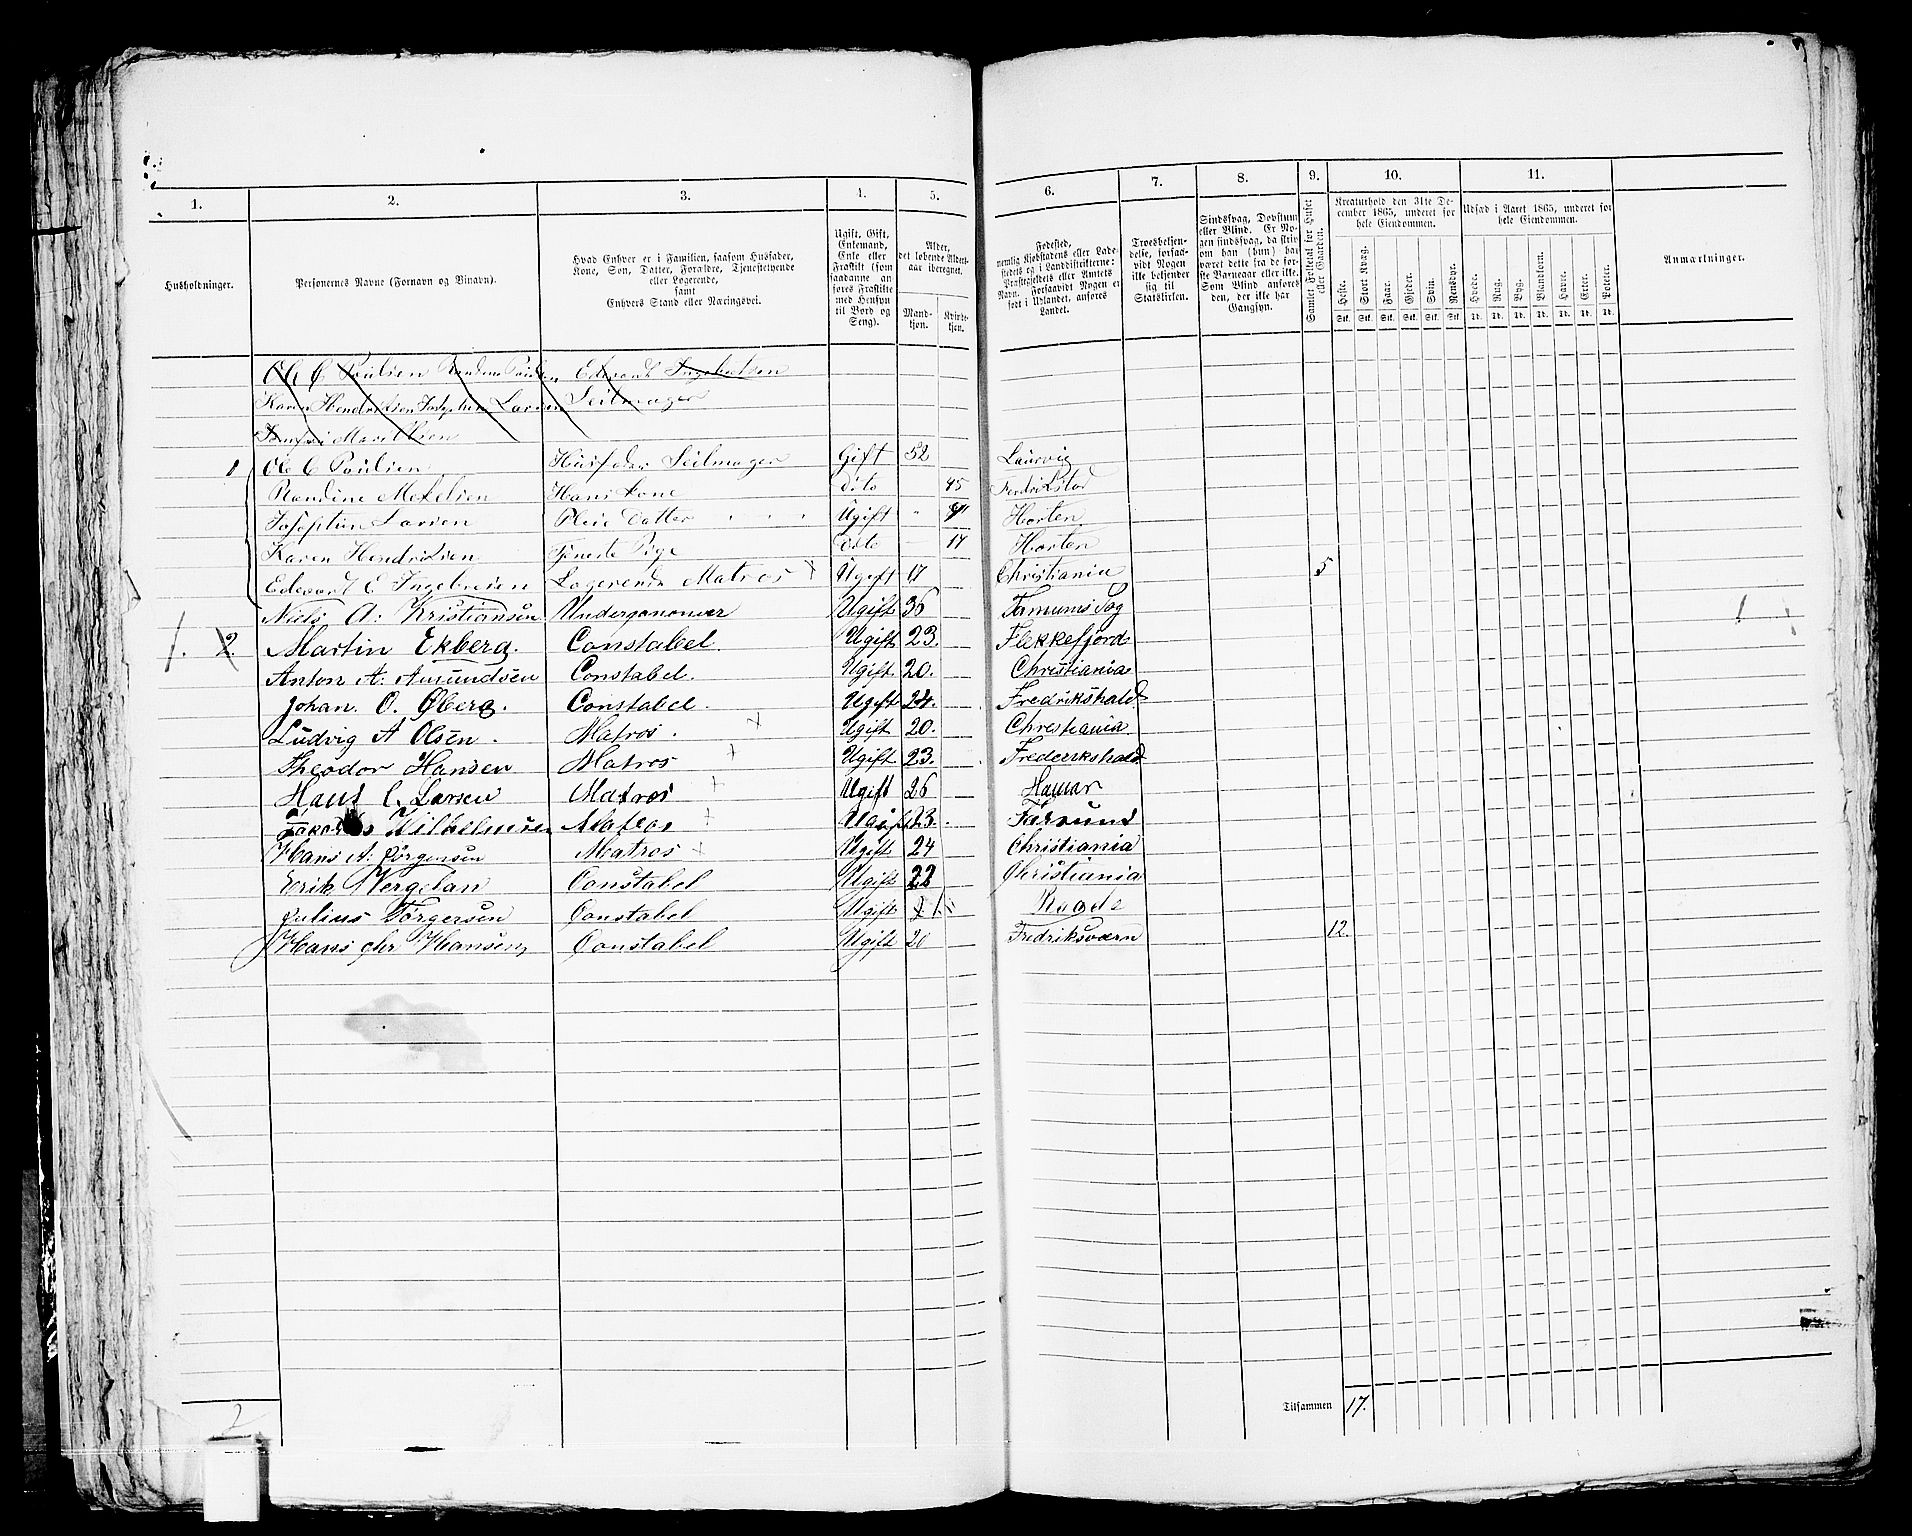 1. 2. 3. 4. 5. 6. 7. 8. 9. 10. 11.
Husholdninger.
Personernes Navne (Fornavn og Binavn).
Hvad Enhver er i Familien, saasom Husfader, Kone, Son, Datter, Forældre, Tjenestetyende eller Logerende, samt Enhvers Stand eller Næringsvei.
Ugift, Gift, Enkemand, Enke eller Fraskilt (som saadanne anføres Fraskilte med Hensyn til Bord og Seng).
Alder, det løbende Aldersaar iberegnet.
Mandkjøn. Kvindekjøn.
Fødested, nemlig Kjøbstadens eller Ladestedets og i Landdistrikterne: Præstegjeldets eller Amtets Navn. Forsaavidt Nogen er født i Udlandet, anføres Landet.
Troesbekjendelse, forsaavidt Nogen ikke bekjender sig til Statskirken.
Sindssvag, Døvstum eller Blind. Er Nogen sindssvag, da skrives om han (hun) har været dette fra de første Barneaar eller ikke. Som Blind anføres den, der ikke har Gangsyn.
Gamlet Folketal for Huset eller Gaarden.
Kreaturhold den 31te December 1865, underet for hele Eiendommen.
Heste. Stort Kvæg. Faar. Gjeder. Svin. Rensdyr.
Stk. Stk. Stk. Stk. Stk. Stk.
Udsæd i Aaret 1865, underet for hele Eiendommen.
Hvede. Rug. Byg. Blandkorn. Havre. Erter. Poteter.
Anmærkninger.
Ole C Paulsen Randine Paulsen Edevardt Ingebretsen
Karen Hendriksen Josephin Larsen Seilmager
1 Ole C Paulsen Husfader Seilmager Gift 52 Laurvig
Randine Mekelsen Hans Kone Dito 45 Fredrikstad
Josephin Larsen Pleie Datter Ugift Horten
Karen Hendriksen Tjeneste Pige Dito 17 Horten
Edevardt E Ingebretsen Logerende Matros Ugift 17 Christiania 5
Niels A: Kristiansen Underqanoneer Ugift 36
1. 2. Martin Ekberg. Constabel. Ugift 23. Flekkefjord
Anton A: Amundsen Constabel. Ugift 20. Christiania
Johan. O. Øberg. Constabel. Ugift 24. Fredrikshald
Ludvig A Olsen. Matros. Ugift 20. Christiania
Theodor Hansen Matros Ugift 23. Frederikshald
Hans C. Larsen Matros Ugift 26 Hamar
Vilhelmsen Matros Ugift 23. Farsund
Hans A: Jörgensen Matros Ugift 24 Christiania
Erik Vergelan Constabel Ugift 22 Christiania
Julius Törgersen Constabel Ugift 21 Ragde
Hans Chr Hansen Constabel Ugift 20 Fredriksværn 12.
Tilsammen 17.
2